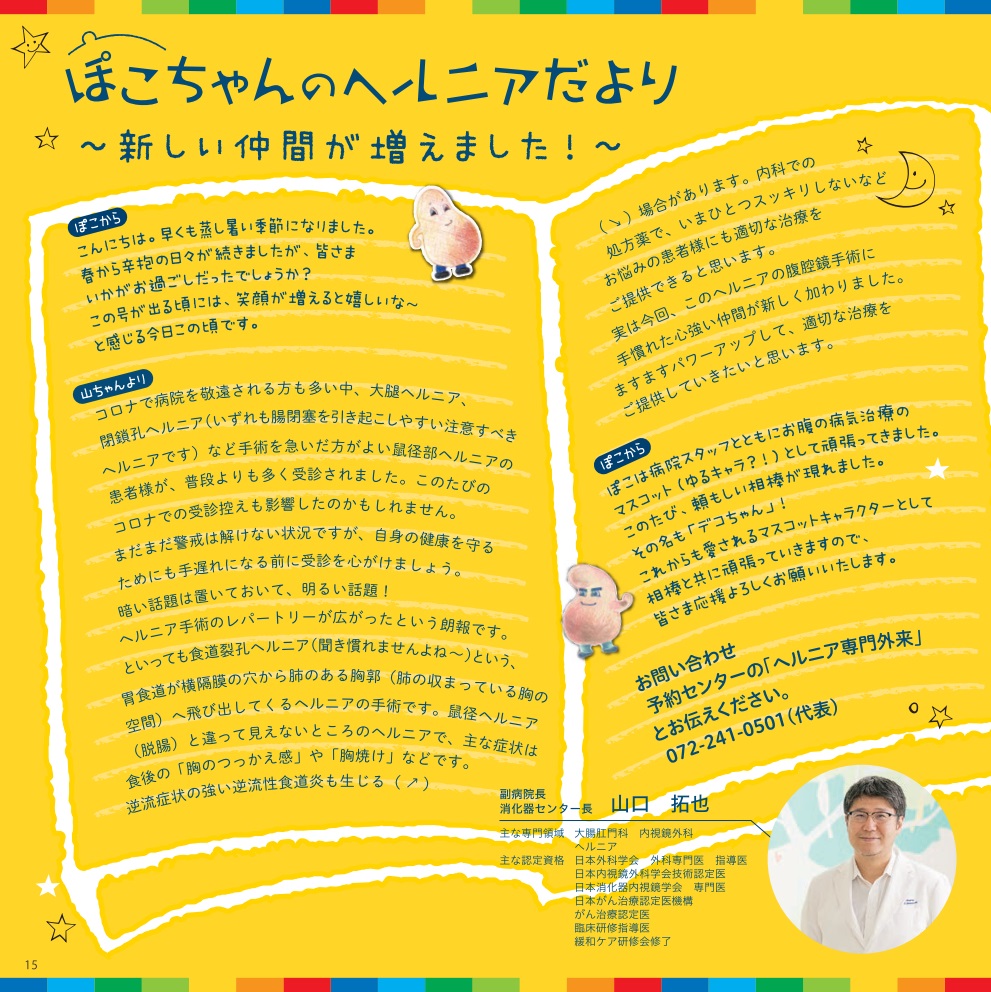 ぽこちゃんのヘルニアだより
～新しい仲間が増えました！～
ぽこから
こんにちは。早くも蒸し暑い季節になりました。
春から辛抱の日々が続きましたが、皆さま
いかがお過ごしだったでしょうか？
この号が出る頃には、笑顔が増えると嬉しいな～
と感じる今日この頃です。
山ちゃんより
コロナで病院を敬遠される方も多い中、大腿ヘルニア、
閉鎖孔ヘルニア（いずれも腸閉塞を引き起こしやすい注意すべき
ヘルニアです）など手術を急いだ方がよい鼠径部ヘルニアの
患者様が、普段よりも多く受診されました。このたびの
コロナでの受診控えも影響したのかもしれません。
まだまだ警戒は解けない状況ですが、自身の健康を守る
ためにも手遅れになる前に受診を心がけましょう。
暗い話題は置いておいて、明るい話題！
ヘルニア手術のレパートリーが広がったという朗報です。
といっても食道裂孔ヘルニア（聞き慣れませんよね～）という、
胃食道が横隔膜の穴から肺のある胸郭（肺の収まっている胸の
空間）へ飛び出してくるヘルニアの手術です。鼠径ヘルニア
（脱腸）と違って見えないところのヘルニアで、主な症状は
食後の「胸のつっかえ感」や「胸焼け」などです。
逆流症状の強い逆流性食道炎も生じる（↗）
（↘）場合があります。内科での
処方薬で、いまひとつスッキリしないなど
お悩みの患者様にも適切な治療を
ご提供できると思います。
実は今回、このヘルニアの腹腔鏡手術に
手慣れた心強い仲間が新しく加わりました。
ますますパワーアップして、適切な治療を
ご提供していきたいと思います。
ぽこから
ぽこは病院スタッフとともにお腹の病気治療の
マスコット（ゆるキャラ？！）として頑張ってきました。
このたび、頼もしい相棒が現れました。
その名も「デコちゃん」！
これからも愛されるマスコットキャラクターとして
相棒と共に頑張っていきますので、
皆さま応援よろしくお願いいたします。
お問い合わせ
予約センターの「ヘルニア専門外来」
とお伝えください。
072-241-0501（代表）
副病院長
消化器センター長　山口　拓也
主な専門領域　大腸肛門科　内視鏡外科
ヘルニア
主な認定資格　日本外科学会　外科専門医　指導医
日本内視鏡外科学会技術認定医
日本消化器内視鏡学会　専門医
日本がん治療認定医機構
がん治療認定医
臨床研修指導医
緩和ケア研修会修了
15